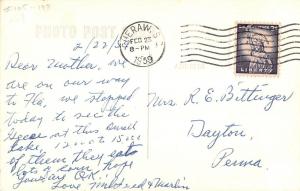 PHOTO POST
CHERAW, S.
FEB 23
8-PM
1959
LIBERTY
2/22/5
Dear Mother, we
are on our way
to Fla, we stopped
today to see the
Geese at this small
Lake, 12 in to 15 in
of them they eat
lots of corn. Hope
you are O.K.
Love Mildred & Merlin
Mrs. R. E. Bittinger
Dayton,
Penna.